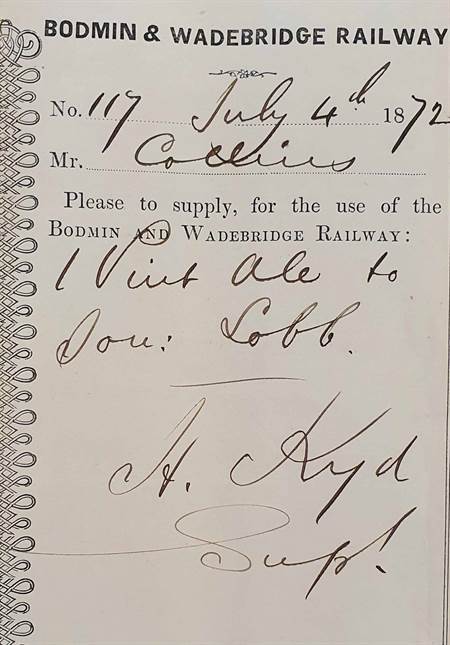 BODMIN & WADEBRIDGE RAILWAY
No. 117 July 4th 1872
Mr. Collins
Please to supply, for the use of the
BODMIN AND WADEBRIDGE RAILWAY:
1 Pint Ale to
Lobb.
H. Kyd
Supt.